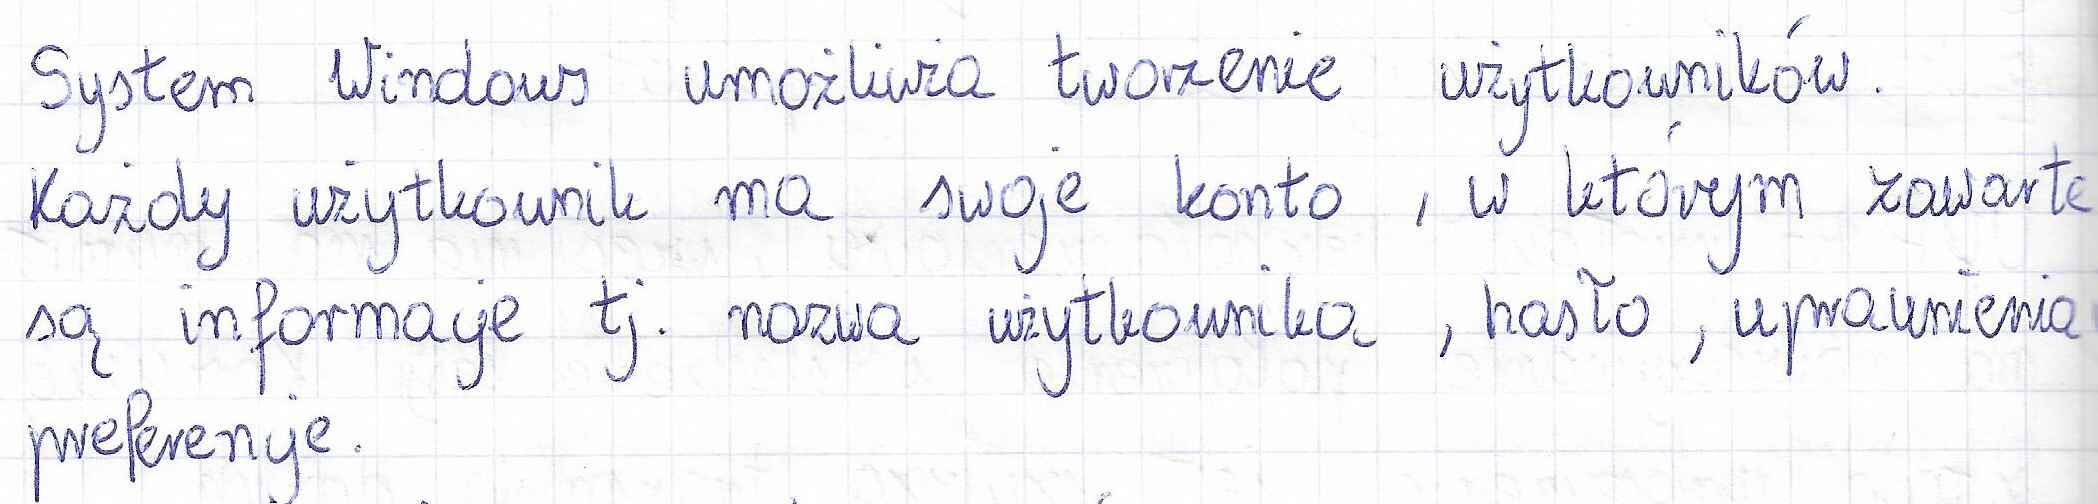 System Windows umożliwia tworzenie użytkowników.
Każdy użytkownik ma swoje konto, w którym zawarte
są informacje tj. nazwa użytkownika, hasło, uprawnienia
preferencje.